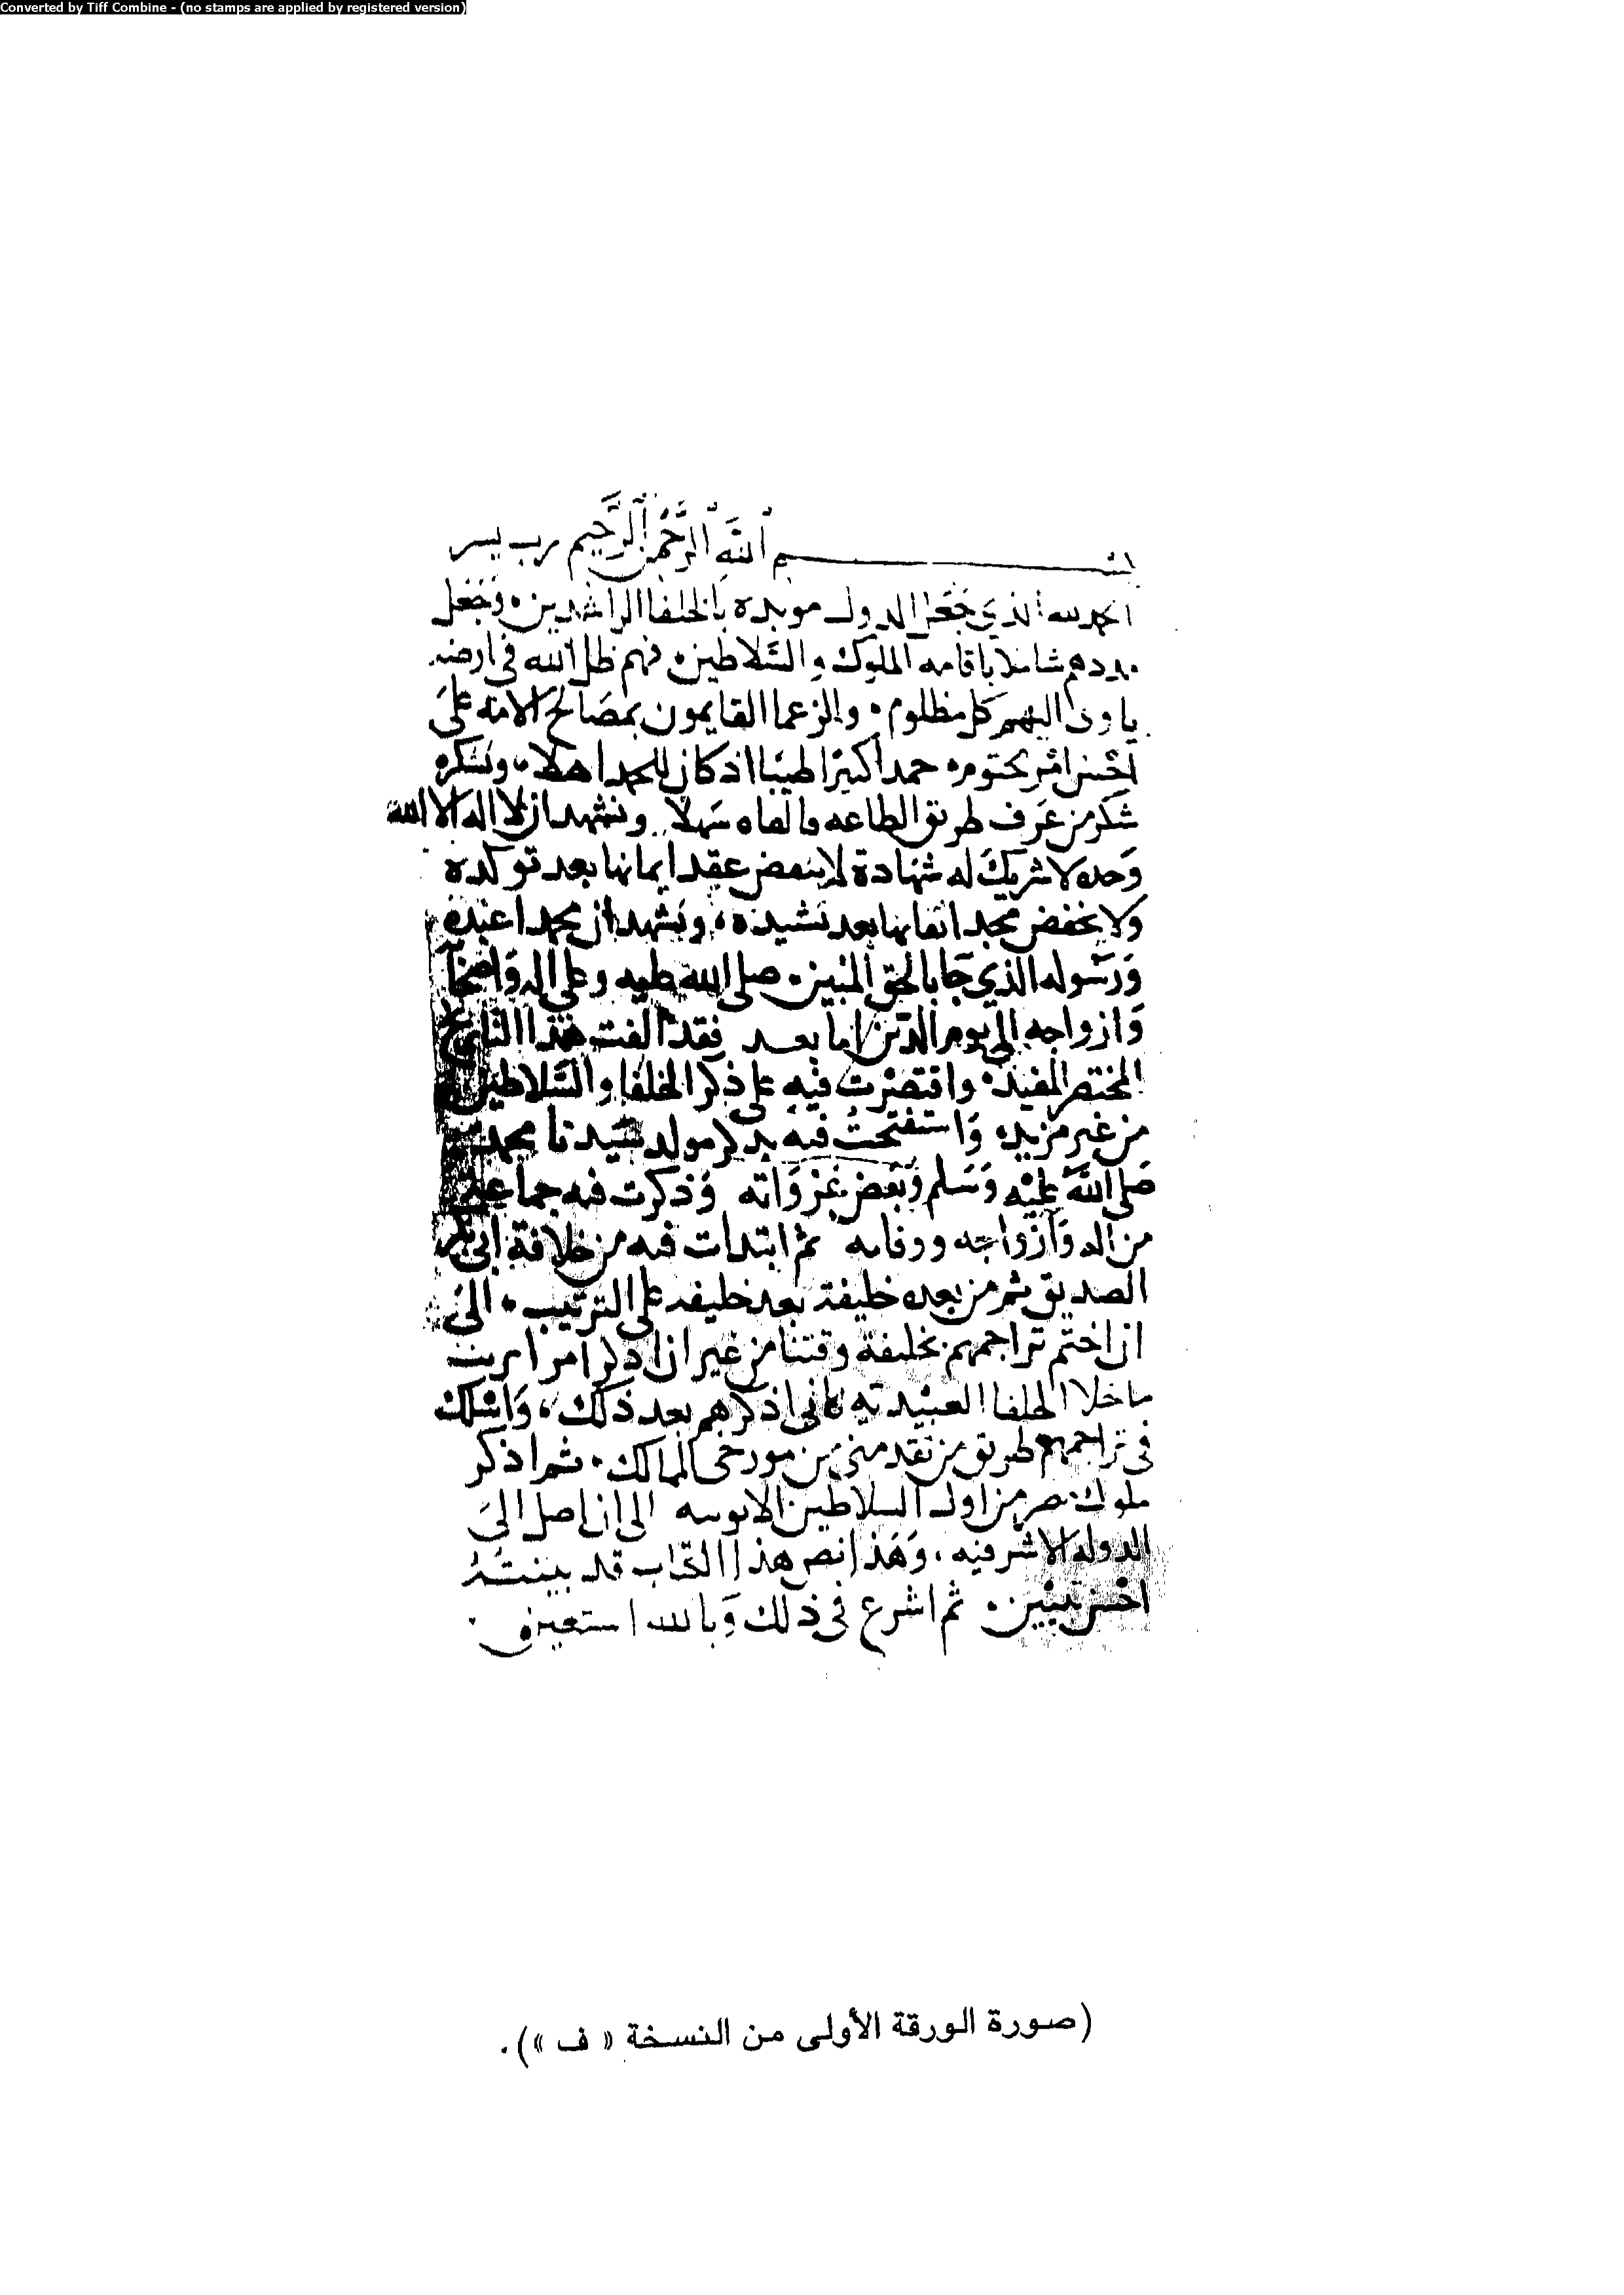 Converted by Tiff Combine - (no stamps are applied by registered version)
بسم الله الرحمن الرحيم رب يسر
الحمد لله الذي جعل الدول مويده بالخلفا الراشدين وجعل
مددهم شاملا باقامه الملوك والسلاطين فهم ظل الله في ارضه
ياوى اليهم كل مظلوم والزعما القايمون بمصالح الامة على
احسن امر محتوم حمدا كثيرا طيبا اذ كان للحمد اهلا ونشكره
شكر من عرف طريق الطاعه فالفاه سهلا ونشهد ان لا اله الا الله
وحده لا شريك له شهادة لا ينقض عقد ايمانها بعد توكده
ولا يخفض مجد اتقانها بعد تشيده ونشهد ان محمدا عبده
ورسوله الذي جا بالحق المبين صلى الله عليه وعلى اله واصحا
وازواجه الى يوم الدين اما بعد فقد الفت هذا التاريخ
المختصر المفيد واقتصرت فيه على ذكر الخلفا والسلاطين
من غير مزيد واستفتحت فيه بذكر مولد سيدنا محمد
صلى الله عليه وسلم وبعض غزواته وذكرت فيه جماعة
من اله وازواجه ووفاته ثم ابتدات فيه من خلافة ابى بكر
الصديق ثم من بعده خليفة بعد خليفه على الترتيب الى
ان اختم تراجمهم بخليفة وقتنا من غير ان اذكر امرا مريب
ما خلا الخلفا العبيدية فانى اذكرهم بعد ذلك واسلك
في تراجمهم طريق من تقدمنى من مورخى الممالك ثم اذكر
ملوك مصر من اول السلاطين الايوبيه الى ان اصل الى
الدوله الاشرفيه وهذا نص هذا الكتاب قد بينته
احسن تبيين ثم اشرع في ذلك وبالله استعين
(صورة الورقة الأولى من النسخة « ف »).